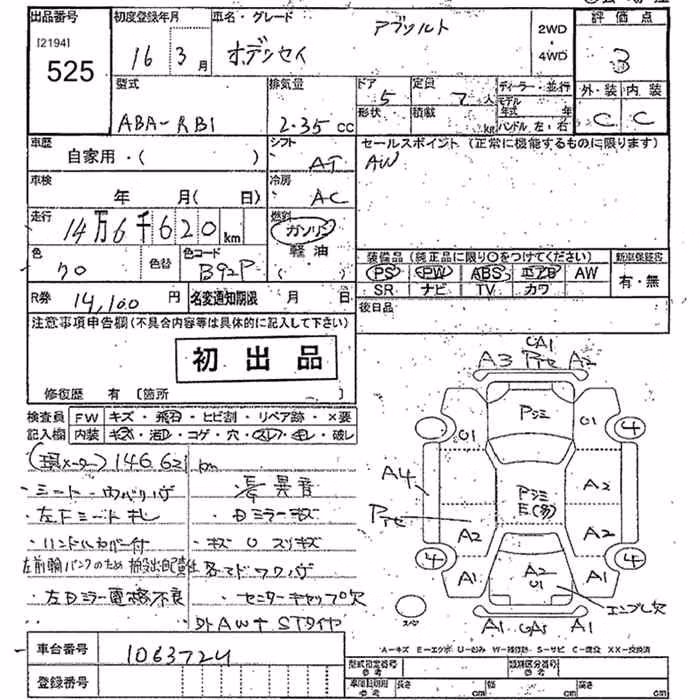 出品番号
[2194]
525
初度登録年月
16 3月
車名・グレード
オデッセイ アブソルト
2WD・4WD
評価点
3
型式
ABA-RB1
排気量
2.35 cc
ドア 5
形状
定員 7人
積載 kg
ディーラー・並行
モデル年式 年
ハンドル 左・右
外・装 内 装
C C
車歴
自家用・( )
シフト AT
セールスポイント (正常に機能するものに限ります)
AW
車検 年 月( 日)
冷房 AC
走行 14万6千620 km
燃料 ガソリン・軽油
色 クロ
色替
色コード B92P
装備品 (純正品に限り○をつけてください)
PS PW ABS エアB AW
SR ナビ TV カワ
新車保証書
有・無
R券 14,160 円
名変通知期限 月 日
後日品
注意事項申告欄(不具合内容等は具体的に記入して下さい)
初出品
修復歴 有 [箇所 ]
検査員記入欄
FW キズ・飛石・ヒビ割・リペア跡・×要
内装 キズ・汚レ・コゲ・穴・スレ・キレ・破レ
(現メーター) 146.621 km
・ハンドルカバー付
・左Dミラー電格不良
・Dミラーキズ
・センターキャップ欠
外AW+STタイヤ
車台番号 1063724
登録番号
CA1
A3 アセ A2
Pシミ
U1 U1
4 4
A4
Pシミ
E(多)
A2
アセ
A2 A2
4 4
A1 A1
A2
U1
エンブレ欠
スペア
A1 CA5 A1
A-キズ E-エクボ U-凹み W-補修跡 S-サビ C-腐食 XX-交換済
型式指定番号
参考
類別区分番号
参考
車両諸元
参考
長さ cm
幅 cm
高さ cm